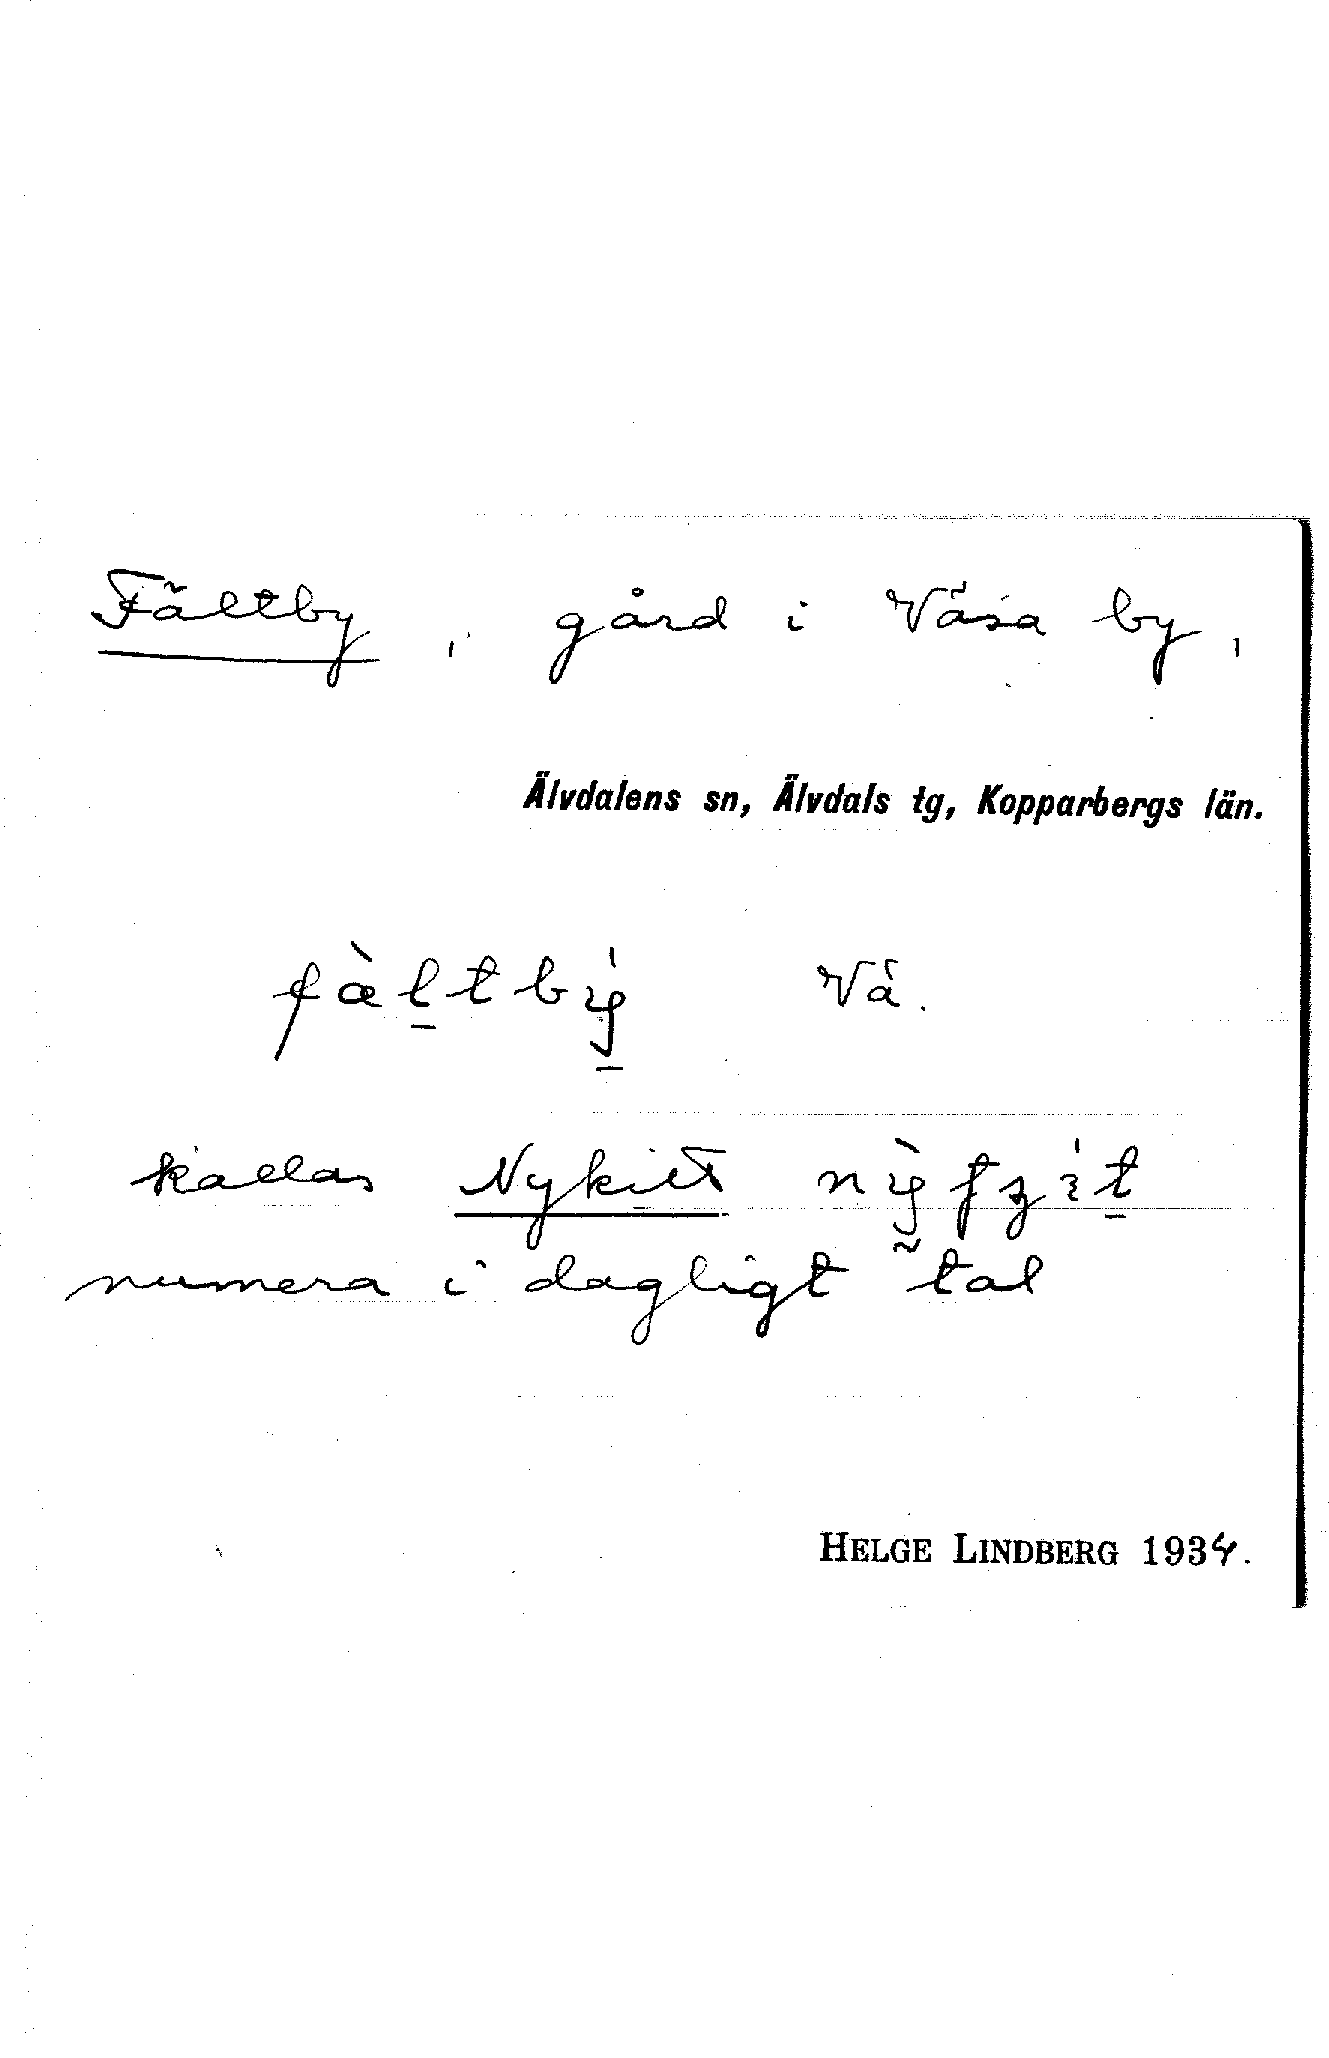 Fältby, gård i Väsa by,
Älvdalens sn, Älvdals tg, Kopparbergs län.
fæ̀ltbý Vä.
kallas Nykilt
numera i dagligt tal
HELGE LINDBERG 1934.